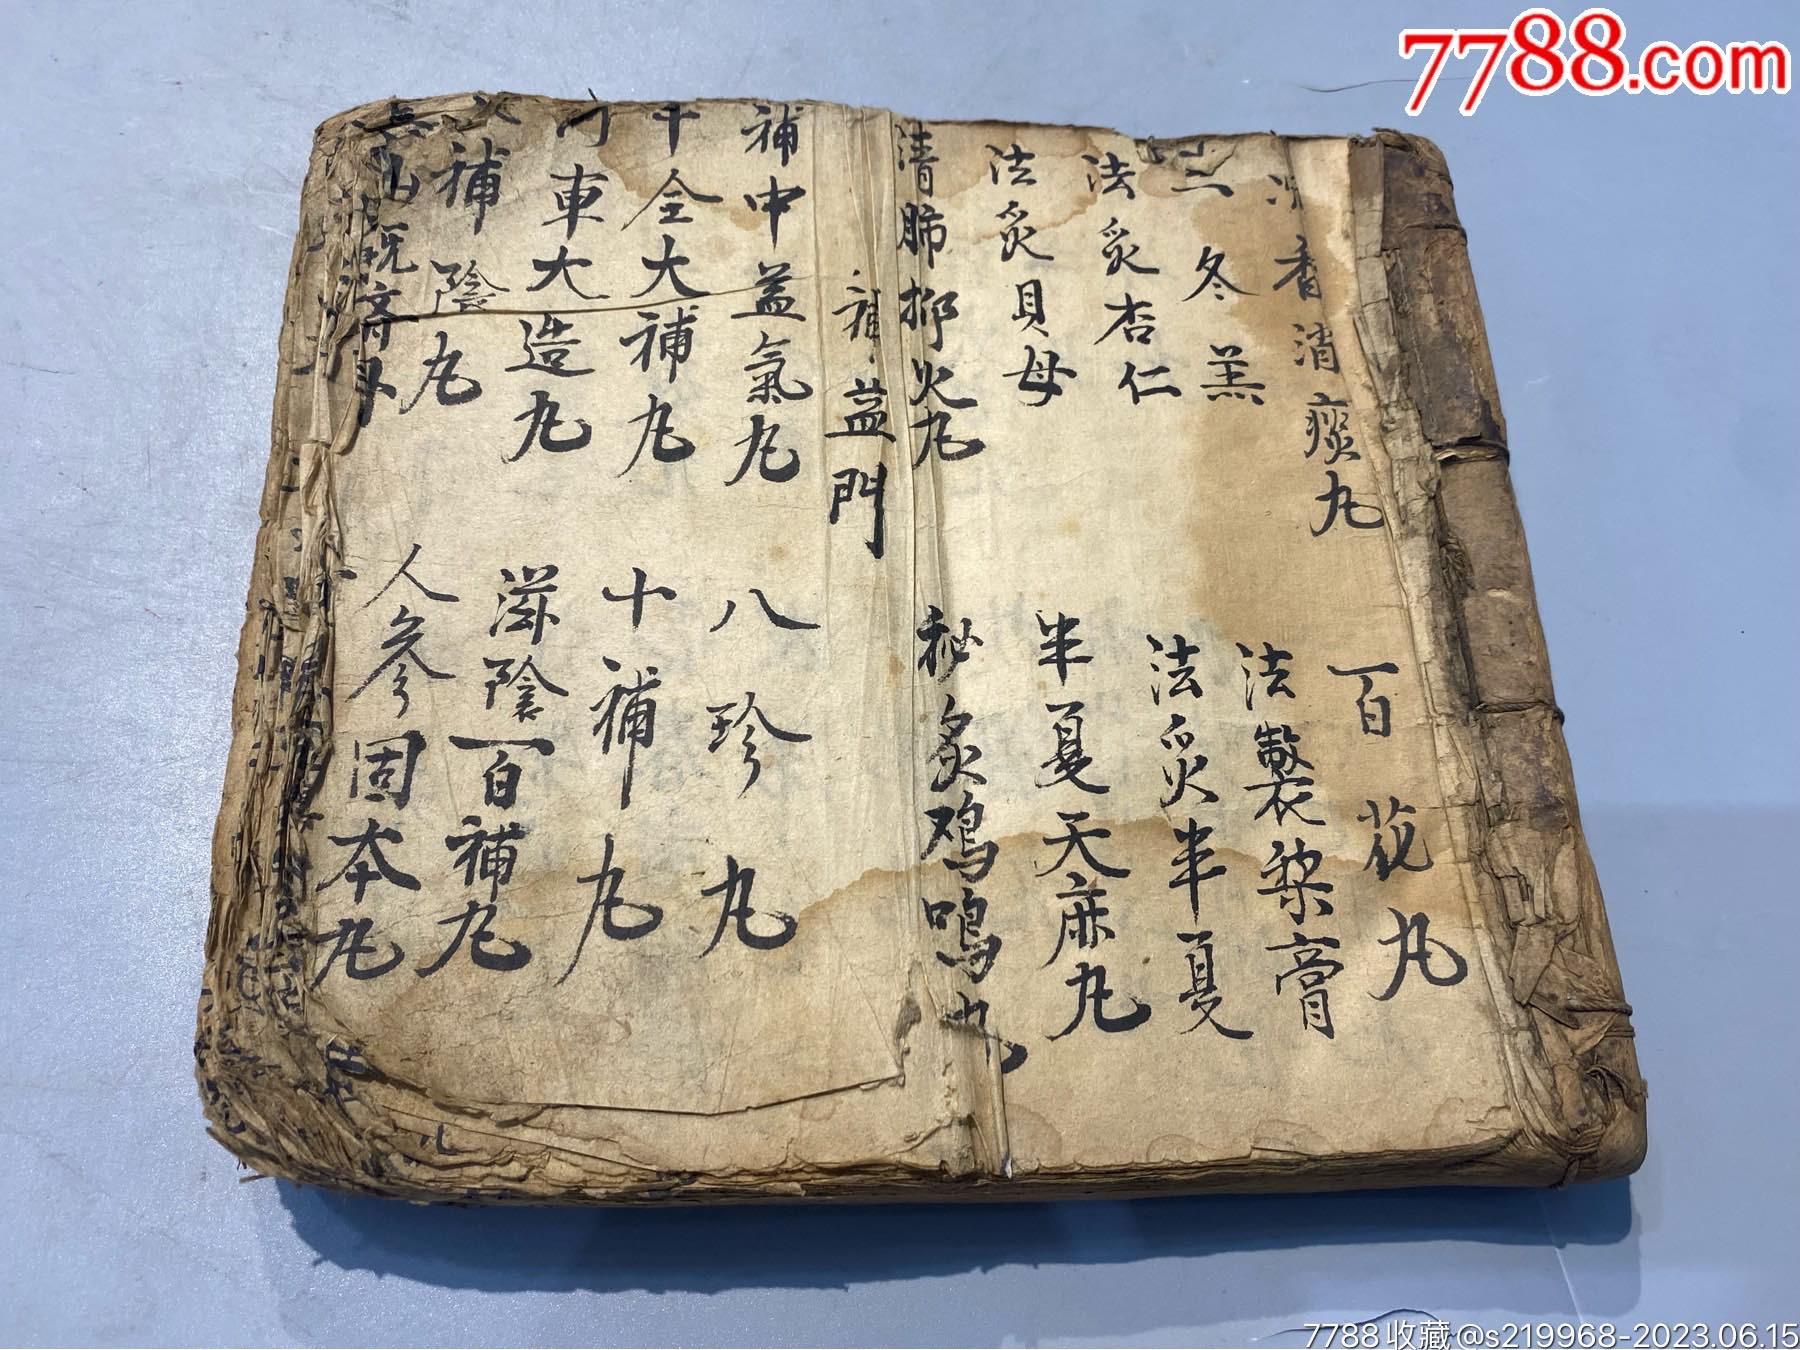 7788.com
香消痰丸
百花丸
三冬羔
法製梨膏
法炙杏仁
法炙半夏
法炙貝母
半夏天麻丸
清肺抑火丸
秘炙鸡鳴丸
補益門
補中益氣丸
八珍丸
十全大補丸
十補丸
河車大造丸
滋陰百補丸
補陰丸
人參固本丸
7788收藏@s219968-2023.06.15